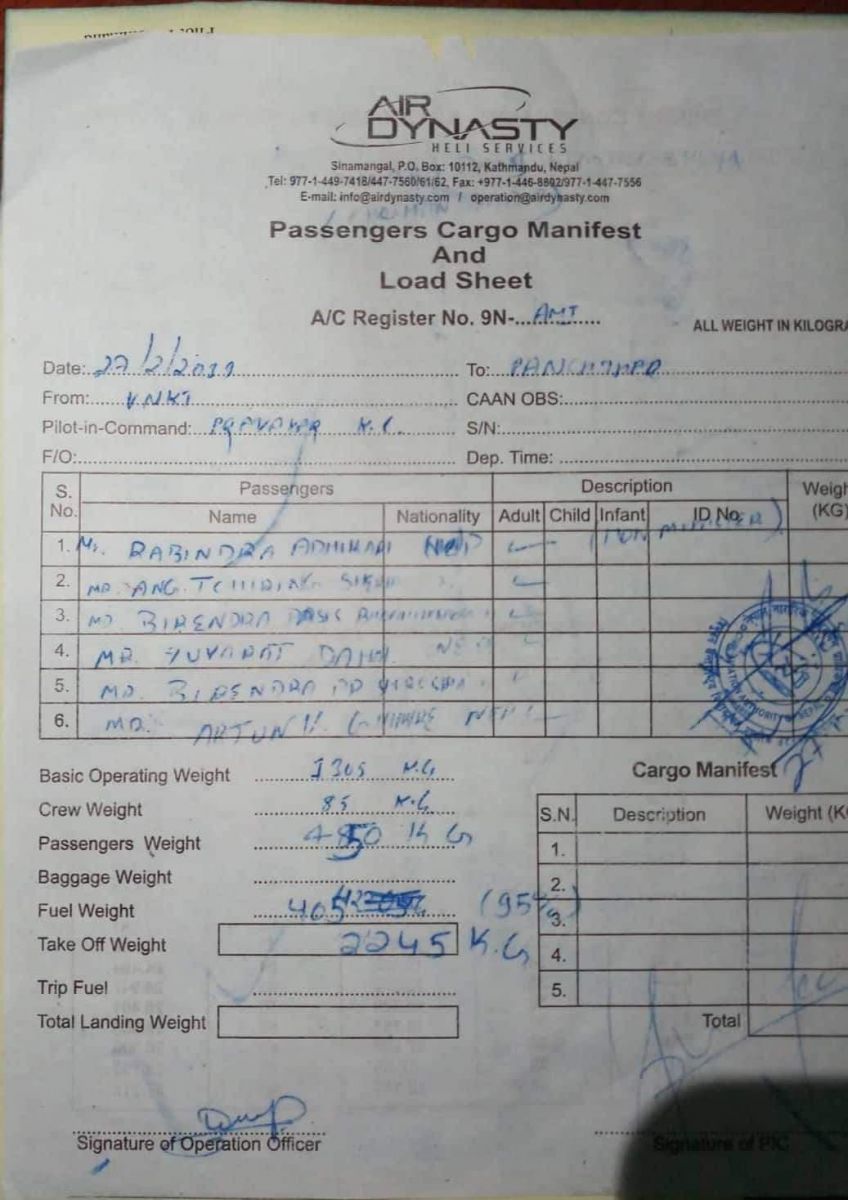 AIR
DYNASTY
HELI SERVICES
Sinamangal, P.O. Box: 10112, Kathmandu, Nepal
Tel: 977-1-449-7418/447-7560/61/62, Fax: +977-1-446-8802/977-1-447-7556
E-mail: info@airdynasty.com / operation@airdynasty.com
Passengers Cargo Manifest
And
Load Sheet
A/C Register No. 9N-...AMI......
ALL WEIGHT IN KILOGRA
Date: 27/2/2019 To:
From: VNKT CAAN OBS:
Pilot-in-Command: K.C. S/N:
F/O: Dep. Time:
S. No. Passengers Description Weigh (KG)
Name Nationality Adult Child Infant ID No.
1. Mr. RABINDRA ADHIKARI NEP
2. MR. ANG
3. MR. BIRENDRA
4. MR. YUVARAJ DAHAL
5. MR. BIRENDRA
6. MR. ARJUN
Basic Operating Weight 1305 K.G
Crew Weight 85 K.G
Passengers Weight 450 K G
Baggage Weight
Fuel Weight 405 (95%)
Take Off Weight 2245 K.G
Trip Fuel
Total Landing Weight
Cargo Manifest
S.N. Description Weight (K
1.
2.
3.
4.
5.
Total
Signature of Operation Officer
Signature of PIC